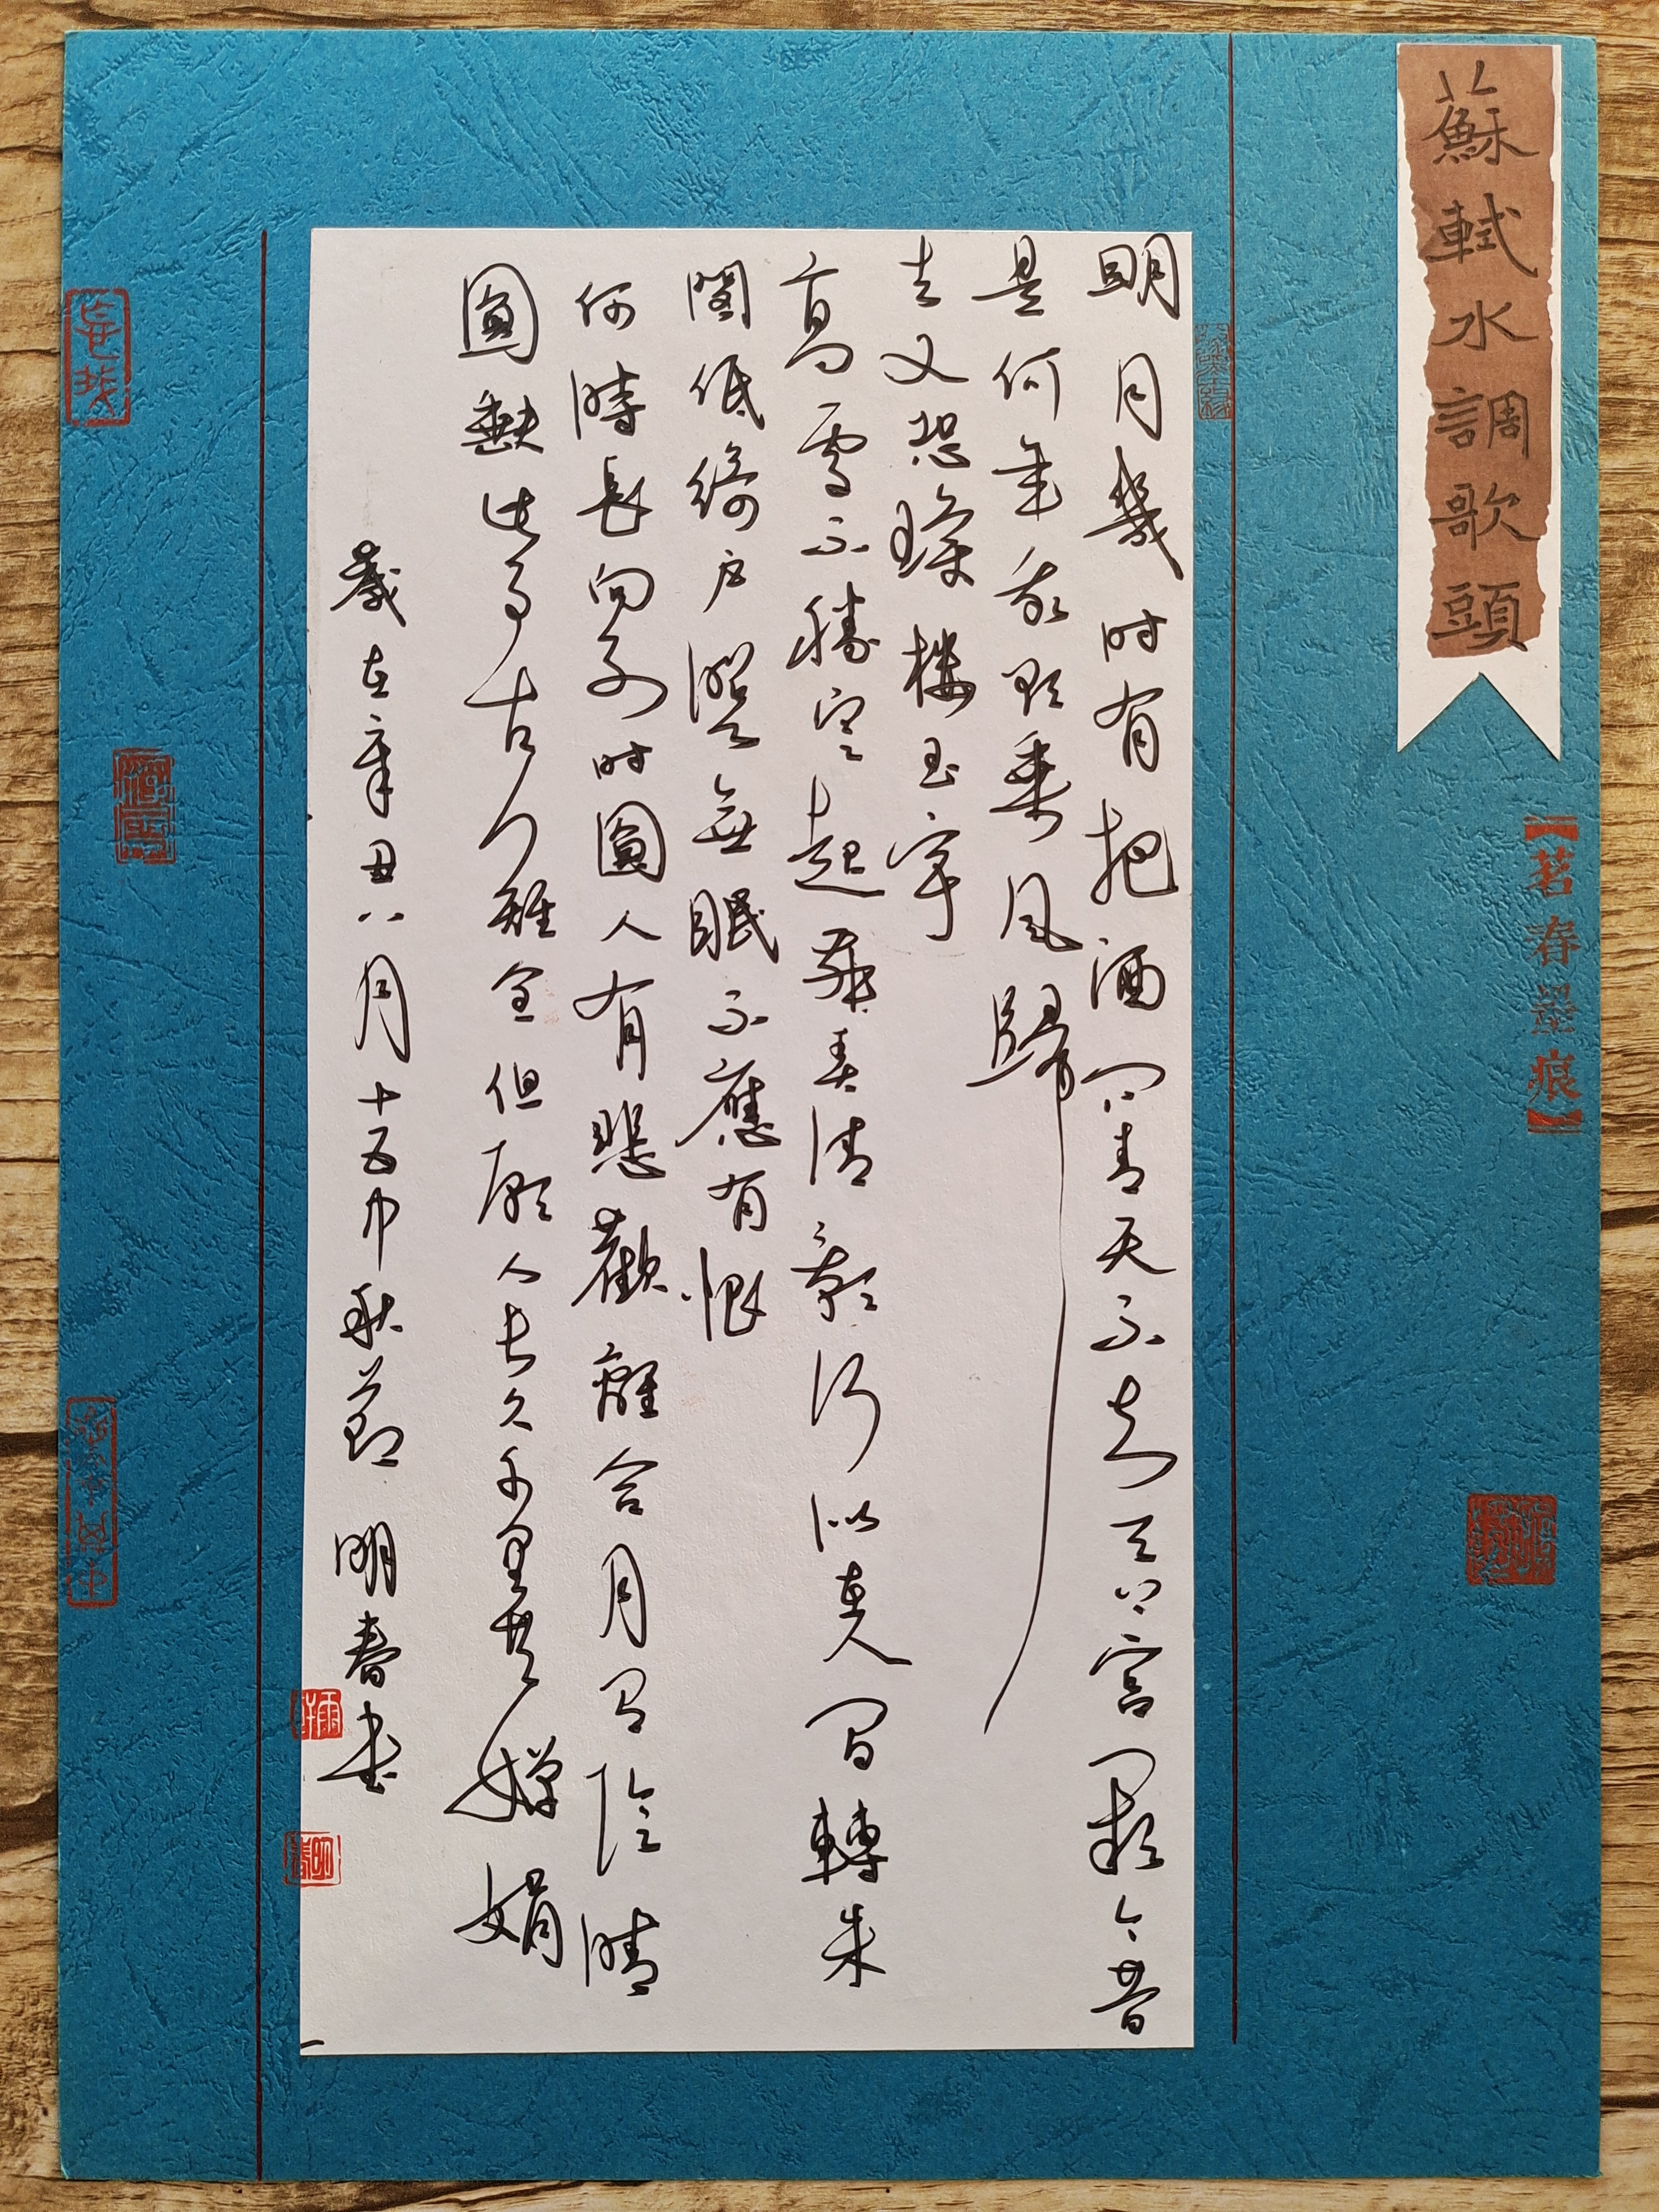 蘇軾水調歌頭
【茗春墨痕】
明月幾时有把酒问青天不知天上宫阙今昔
是何年我欲乘风歸
去又恐瓊楼玉宇
高處不勝寒起舞弄清影何似在人间轉朱
閣低綺户照無眠不應有恨
何時長向别时圓人有悲歡離合月有陰晴
圓缺此事古難全但願人長久千里共嬋娟
歲在辛丑八月十五中秋節 明春書
明春